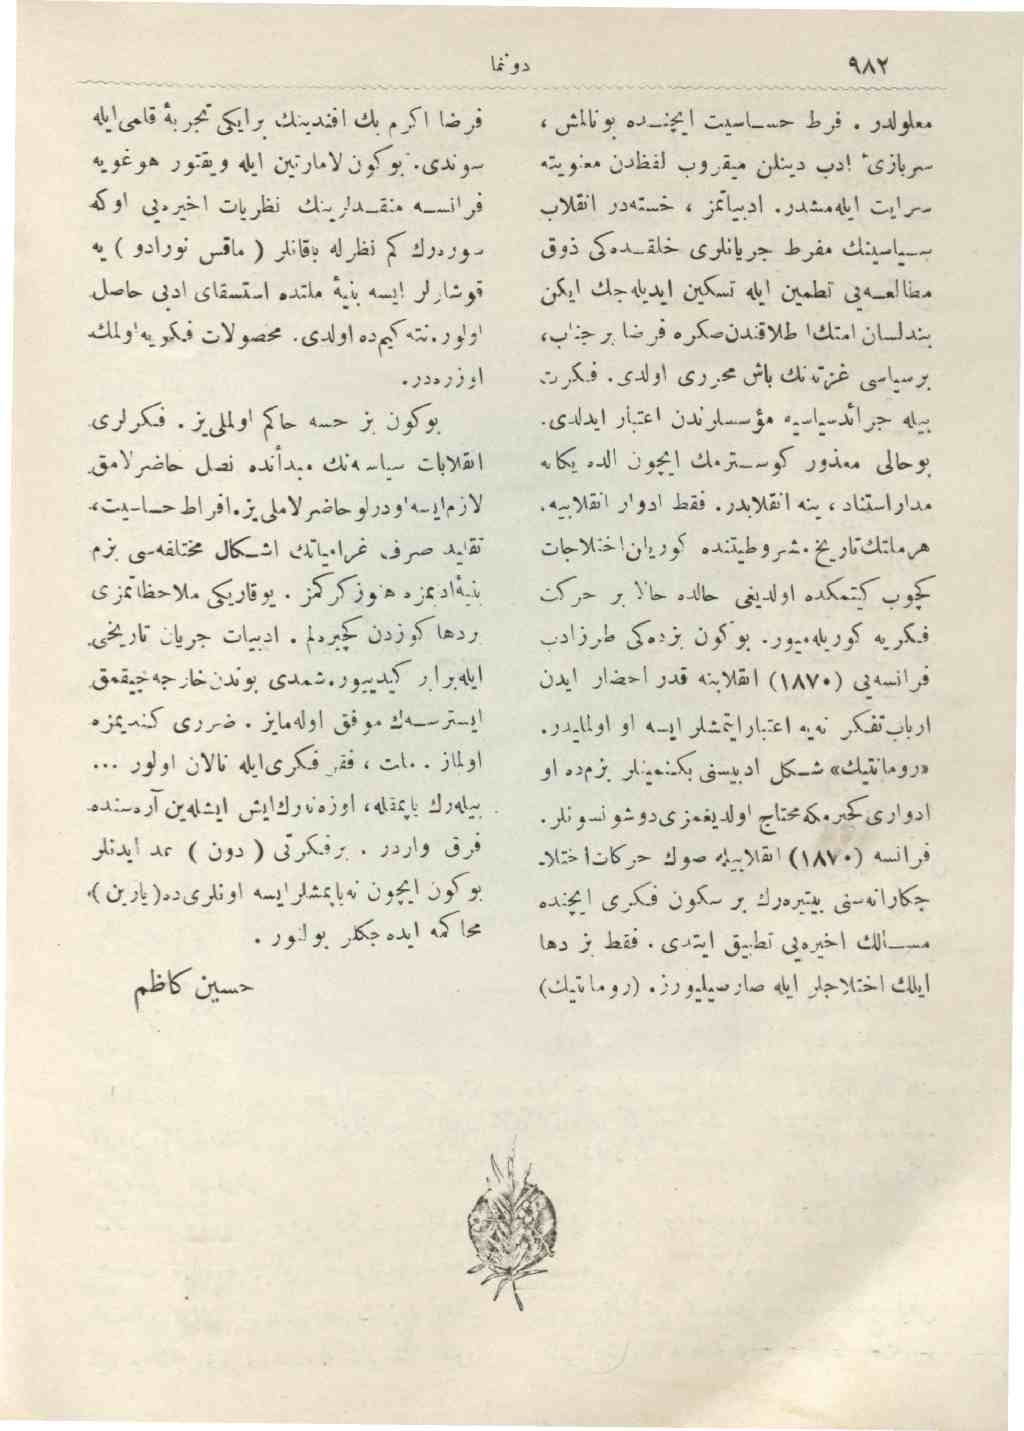 ٩٨٢
دونما
معلولدر . فرط حساسیت ایچنده بونالمش ،
ادب دینلن میقروب لفظدن معنویته
سرایت ایله‌مشدر. ادبیاتمز ، خسته‌در انقلاب
سیاسینك مفرط جریانلری خلقده‌كی ذوق
مطالعه‌یی تطمین ایله تسكین ایدیله‌جك ایكن
طلاقندن‌صكره فرضا بر جناب،
برسیاسی غزته‌نك باش محرری اولدی. فكرت
بیله جرائدسیاسیه مؤسسلرندن اعتبار ایدلدی.
بوحالی معذور كوسترمك ایچون الده یكانه
مداراستناد ، ینه انقلابدر. فقط ادوار انقلابیه.
هرملتك‌تاریخ مشروطیتنده كوریلن‌اختلاجات
كچوب كیتمكده اولدیغی حالده حالا بر حركت
فكریه كوریله‌میور. بوكون بزده‌كی طرزادب
فرانسه‌یی (١٨٧٠) انقلابنه قدر احضار ایدن
ارباب‌تفكر نه‌یه اعتبارایتمشلر ایسه او اولمالیدر.
«رومانتیك» شكل ادبیسنی بكنمینلر بزم‌ده او
ادواری‌كچیرمكه‌محتاج اولدیغمزی‌دوشونسونلر.
فرانسه (١٨٧٠) انقلابیله صوك حركات‌اختلا-
جكارانه‌سنی بیتیره‌رك بر سكون فكری ایچنده
مسالك اخیره‌یی تطبیق ایتدی. فقط بز دها
ایلك اختلاجلر ایله صارصیلیورز. (رومانتیك)
فرضا اكرم بك افندینك برایكی تجربهٔ قلمی‌ایله
سوندی. بوكون لامارتین ایله ویقتور هوغویه
فرانسه منقدلرینك نظریات اخیره‌یی اوكه
سوره‌رك كم نظرله باقانلر ( ماقس نورادو ) یه
قوشارلر ایسه بنیهٔ ملتده استسقای ادبی حاصل
اولور.نته‌كیم‌ده اولدی. محصولات فكریه اولمك
اوزره‌در.
بوكون بز حسه حاكم اولملی‌یز . فكرلری
انقلابات سیاسه‌نك مبدأنده نصل حاضرلامق
لازم‌ایسه‌اودرلوحاضرلاملی‌یز.افراط حساسیت،
تقلید صرف غرامیاتك اشكال مختلفه‌سی بزم
بنیهٔ‌ادبمزه هنوز كركمز . یوقاریكی ملاحظاتمزی
بردها كوزدن كچیره‌لم . ادبیات جریان تاریخی
ایله‌برابر كیدییور.شمدی بوندن‌خارجه‌چیقمق
ایسترسه‌ك موفق اوله‌مایز . ضرری كندیمزه
اولماز . ملت ، فقر فكری‌ایله نالان اولور ...
بیله‌رك یاپمقله، اوزه‌نه‌رك‌ایش ایشله‌ین آره‌سنده
فرق واردر . برفكرتی ( دون ) مد ایدنلر
بوكون ایچون نه‌یاپمشلرایسه اونلری‌ده(یارین)
محاكمه ایده‌جكلر بولنور .
حسین كاظم